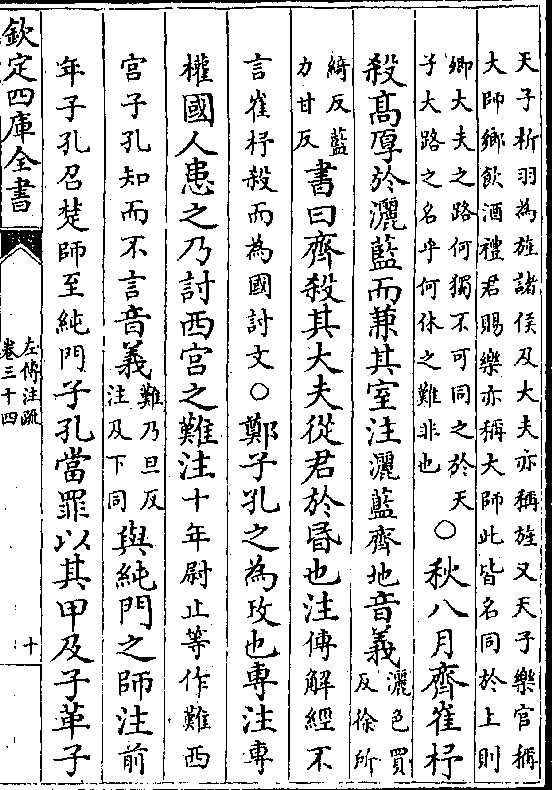 天子析羽為旌諸侯及大夫亦稱旌又天子樂官稱
大師鄉飲酒禮君賜樂亦稱大師此皆名同於上則
卿大夫之路何獨不可同之於天
子大路之名乎何休之難非也
○秋八月齊崔杼
殺高厚於灑藍而兼其室注灑藍齊地音義
灑色買
反徐所
綺反藍
力甘反
書曰齊殺其大夫從君於昬也注傳解經不
言崔杼殺而為國討文○鄭子孔之為政也專注專
權國人患之乃討西宫之難注十年尉止等作難西
宫子孔知而不言音義
難乃旦反
注及下同
與純門之師注前
年子孔召楚師至純門子孔當罪以其甲及子革子
欽定四庫全書
左傳注疏
卷三十四
十